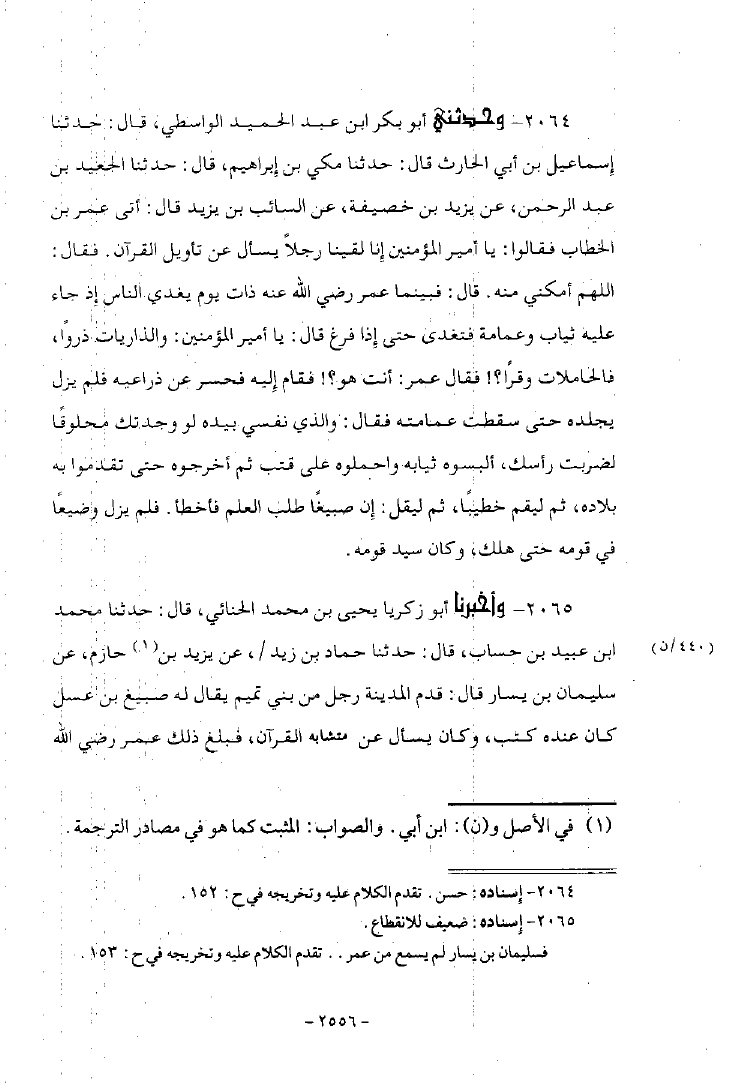 ٢٠٦٤- وحدثني أبو بكر ابن عبد الحميد الواسطي، قال: حدثنا
إسماعيل بن أبي الحارث قال: حدثنا مكي بن إبراهيم، قال: حدثنا الجعيد بن
عبد الرحمن، عن يزيد بن خصيفة، عن السائب بن يزيد قال: أتى عمر بن
الخطاب فقالوا: يا أمير المؤمنين إنا لقينا رجلاً يسأل عن تأويل القرآن. فقال:
اللهم أمكني منه. قال: فبينما عمر رضي الله عنه ذات يوم يغدي الناس إذ جاء
عليه ثياب وعمامة فتغدى حتى إذا فرغ قال: يا أمير المؤمنين: والذاريات ذروًا،
فالحاملات وقرًا؟! فقال عمر: أنت هو؟! فقام إليه فحسر عن ذراعيه فلم يزل
يجلده حتى سقطت عمامته فقال: والذي نفسي بيده لو وجدتك محلوقًا
لضربت رأسك، ألبسوه ثيابه واحملوه على قتب ثم أخرجوه حتى تقدموا به
بلاده، ثم ليقم خطيبًا، ثم ليقل: إن صبيغًا طلب العلم فأخطأ. فلم يزل وضيعًا
في قومه حتى هلك، وكان سيد قومه.
٢٠٦٥- وأخبرنا أبو زكريا يحيى بن محمد الحنائي، قال: حدثنا محمد
ابن عبيد بن حساب، قال: حدثنا حماد بن زيد/، عن يزيد بن(١) حازم، عن
(٤٤٠/ن)
سليمان بن يسار قال: قدم المدينة رجل من بني تميم يقال له صبيغ بن عسل
كان عنده كتب، وكان يسأل عن متشابه القرآن، فبلغ ذلك عمر رضي الله
(١) في الأصل و(ن): ابن أبي. والصواب: المثبت كما هو في مصادر الترجمة.
٢٠٦٤- إسناده: حسن. تقدم الكلام عليه وتخريجه في ح: ١٥٢.
٢٠٦٥- إسناده: ضعيف للانقطاع.
فسليمان بن يسار لم يسمع من عمر.. تقدم الكلام عليه وتخريجه في ح: ١٥٣.
-٢٥٥٦-